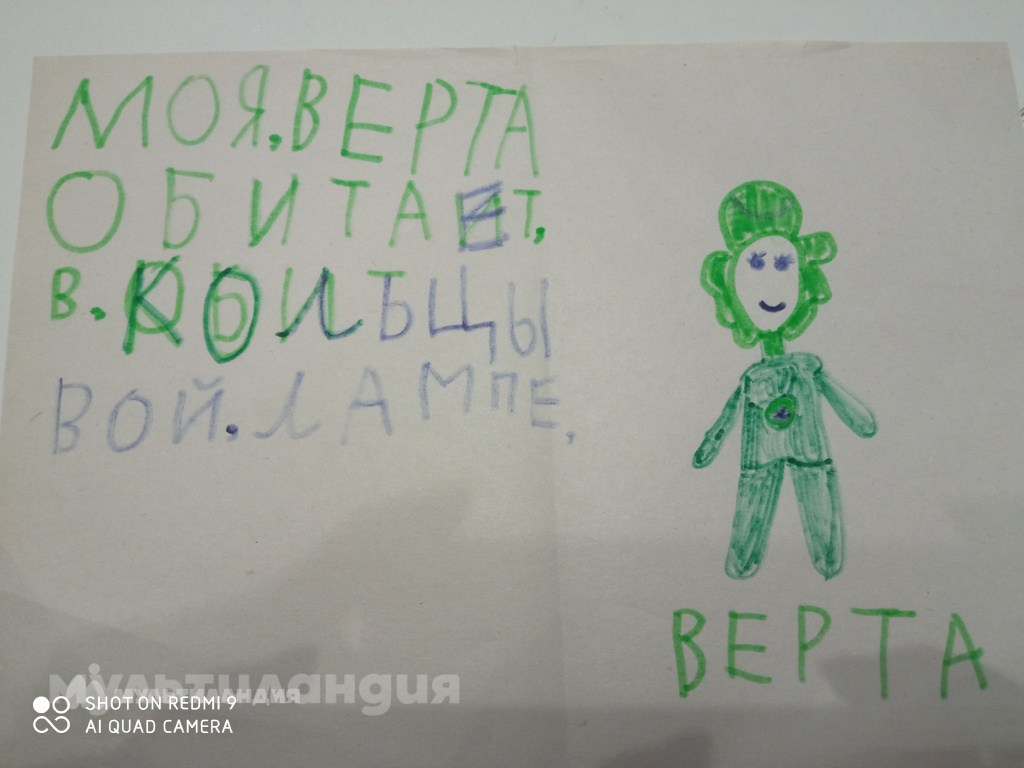 МОЯ.ВЕРТА
ОБИТАЕТ.
В.КОЛЬЦЫ
ВОЙ.ЛАМПЕ.
ВЕРТА
мультиландия
мультиландия
SHOT ON REDMI 9
AI QUAD CAMERA